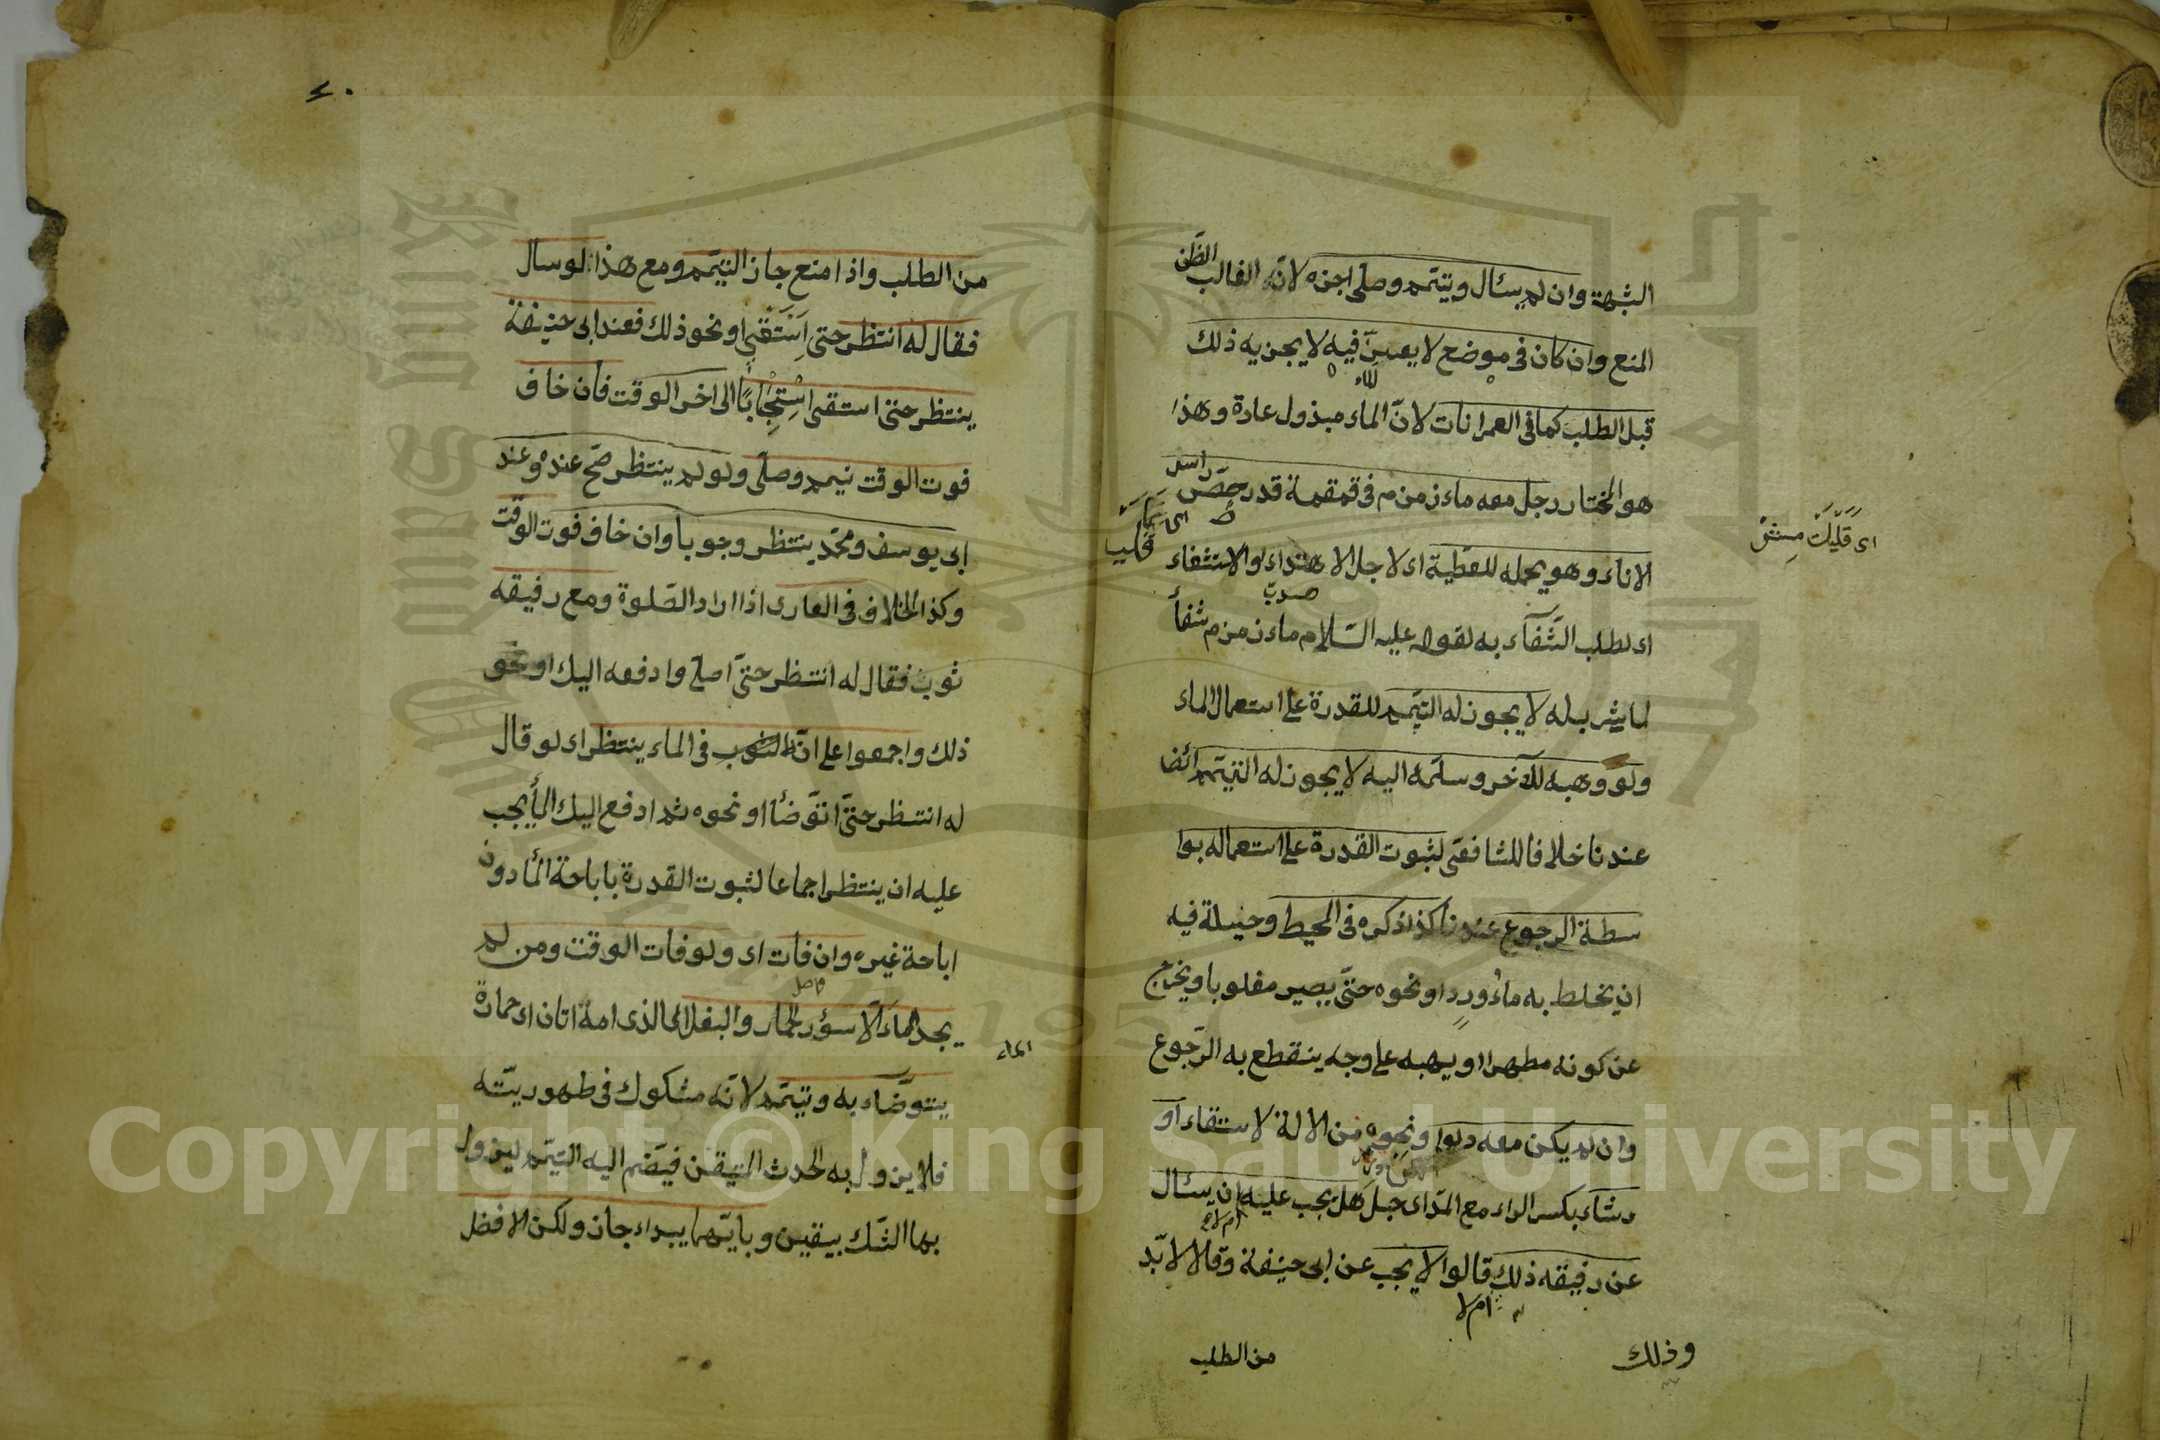 الشبهة وان لم يسئال ويتيمم وصلى اجزه لانّه الغالب الظن
المنع وان كان في موضع لا يعسر فيه لا يجزيه ذلك
للماء
قبل الطلب كما في العمرانات لانّ الماء مبذول عادة وهذا
هو المختار رجل معه ماء زمزم في قمقمة قدر حصّص راس
الاناء وهو يحمله للعطية اى لاجل الاهتداء او الاستشفاء
اى لطلب الشّفآء به لقوله عليه السّلام ماء زمزم شفأ
لما شرب له لا يجوز له التيمم للقدرة على استعمال الماء
ولو وهبه لآخر وسلّمه اليه لا يجوز له التيمّم ائضا
عندنا خلافا للشافعى لثبوت القدرة على استعماله بوا
سطة الرجوع عندنا كذا ذكره فى المحيط وحيلة فيه
ان يخلط به ماء ورد او نحوه حتّى يصير مغلوبا ويخرج
عن كونه مطهرا او يهبه على وجه ينقطع به الرّجوع
وان لم يكن معه دلوا ونحوه من الالة لاستقاء او
رشاء بكسر الراء مع المدّ اى حبل هل يجب عليه ان يسئال
ام لا
عن رفيقه ذلك قالوا لا يجب عن ابى حنيفة وقالا لا بّد
ام لا
وذلك
من الطلب
من الطلب واذا منع جاز التيمّم ومع هذا لو سال
فقال له انتظر حتى اَسْتَقْىِ او نحو ذلك فعند ابى حنيفة
ينتظر حتى استقى اسْتِحْبَابًا الى اخر الوقت فان خاف
فوت الوقت تيمم وصلّى ولو لم ينتظر صحّ عنده وعند
ابى يوسف ومحمّد ينتظر وجوبا وان خاف فوت الوقت
وكذا الخلاف فى العارى اذا اراد الصّلوة ومع رفيقه
ثوب فقال له انتظر حتىّ اصلى وادفعه اليك او نحو
ذلك واجمعوا على انّه فى الماء ينتظر اى لو قال
له انتظر حتىّ اتوّضأ او نحوه ثم ادفع اليك الماء يجب
عليه ان ينتظر اجماعا لثبوت القدرة باباحة الماء دون
اباحة غيره وان فات اى ولو فات الوقت ومن لم
يجد الماء الّا سؤر الحمار والبغل الذى امة اتان اى حمارة
الماء
يتوّضاء به وتيمّم لانّه مشكوك فى طهوريّته
فلا يزول به الحدث التيقن فيضّم اليه التيمّم ليزول
بها الشّك بيقين وبايّهما يبداء جاز ولكن الافضل